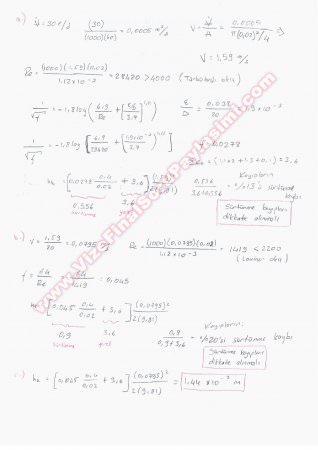 a.) V̇ = 30 ℓ/2   (30)/(1000)(60) = 0,0005 m³/s   V = V̇/A = 0,0005/π(0,02)²/4 ⇒
V = 1,59 m/s
Re = (1000)(1,59)(0,02)/1,12×10⁻³ = 28420 > 4000 (Türbülanslı akış)
1/√f = -1,8 log[6,9/Re + [ε/D/3,7]^1,11]   ε/D = 0,038/20 = 1,9×10⁻³
1/√f = -1,8 log[6,9/28420 + [1,9×10⁻³/3,7]^1,11]   f = 0,0278
= 3,6
hₖ = [0,0278 0,4/0,02 + 3,6] (1,59)²/2(9,81)   0,556/3,6+0,556   Kayıpların %13'ü sürtünme kaybı
0,556 sürtünme   3,6 yerel   Sürtünme kayıpları dikkate alınmalı
b.) V = 1,59/20 = 0,0795 m/s   Re = (1000)(0,0795)(0,02)/1,12×10⁻³ = 1419 < 2200 (Laminer akış)
f = 64/Re = 64/1419 = 0,045
hₖ = [0,045 0,4/0,02 + 3,6] (0,0795)²/2(9,81)
0,9 sürtünme   3,6 yerel   0,9/0,9+3,6   Kayıpların %20'si sürtünme kaybı
Sürtünme kayıpları dikkate alınmalı
c.) hₖ = [0,045 0,4/0,02 + 3,6] (0,0795)²/2(9,81) = 1,44×10⁻³ m
www.VizeFinalSoruPaylasimi.com